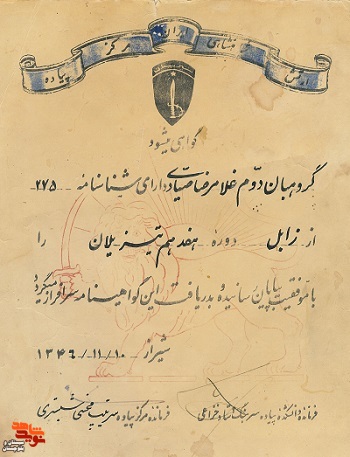 ارتش شاهنشاهی ایران مرکز پیاده
گواهی میشود
گروهبان دوم غلامرضا صیادی دارای شناسنامه ۲۷۵
از زابل دوره هفدهم تیزیلان را
با موفقیت بپایان رسانیده و بدریافت این گواهینامه سرافراز میگردد
شیراز ۱۳۴۶/۱۱/۱۰
فرمانده دانشکده پیاده سرهنگ ستاد خزاعی
فرمانده مرکز پیاده سرتیپ مجتبی شبستری
نوید شاهد